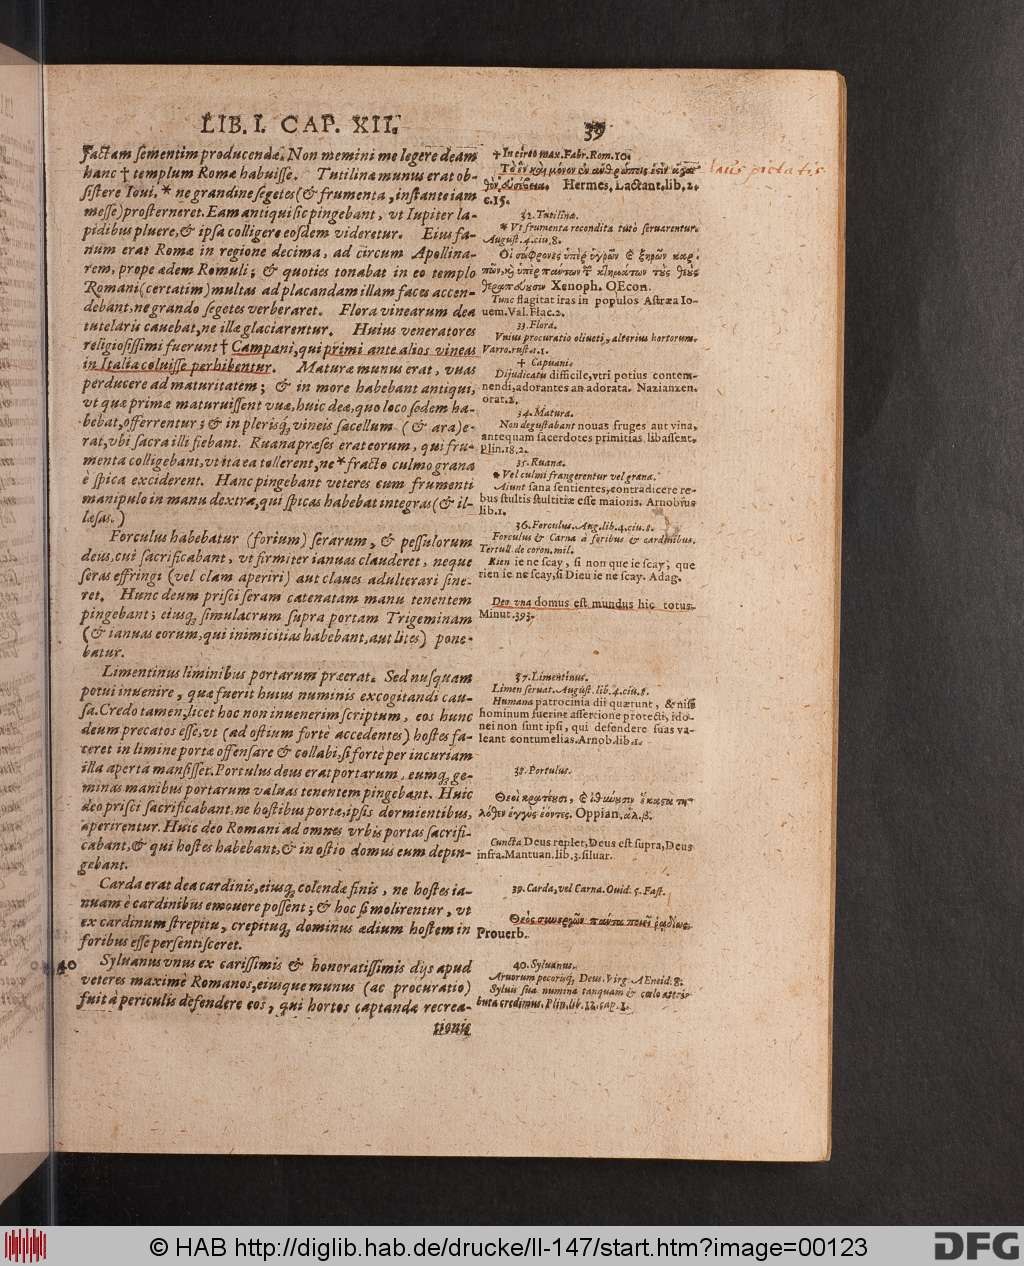 LIB. I. CAP. XII. 39
factam sementim producendæ. Non memini me legere deam
hanc † templum Romæ habuisse. Tutilinæ munus erat ob-
sistere Ioui, * ne grandine segetes (& frumenta, instante iam
messe) prosterneret. Eam antiqui sic pingebant, vt Iupiter la-
pidibus pluere, & ipsa colligere eosdem videretur. Eius fa-
num erat Romæ in regione decima, ad circum Apollina-
rem, prope ædem Romuli; & quoties tonabat in eo templo
Romani (certatim) multas ad placandam illam faces accen-
debant, ne grando segetes verberaret. Flora vinearum dea
tutelaris cauebat, ne illæ glaciarentur. Huius veneratores
religiosissimi fuerunt † Campani, qui primi ante alios vineas
in Italia coluisse perhibentur. Maturæ munus erat, vuas
perducere ad maturitatem; & in more habebant antiqui,
vt quæ primæ maturuissent vuæ, huic deæ, quo loco sedem ha-
bebat, offerrentur; & in plerisq; vineis sacellum (& ara) e-
rat, vbi sacra illi fiebant. Ruana præses erat eorum, qui fru-
menta colligebant, vt ita ea tollerent, ne * fracto culmo grana
è spica exciderent. Hanc pingebant veteres cum frumenti
manipulo in manu dextra, qui spicas habebat integras (& il-
læsas.)
Forculus habebatur (forium) serarum, & pessulorum
deus, cui sacrificabant, vt firmiter ianuas clauderet, neque
seras effringi (vel clam aperiri) aut claues adulterari sine-
ret. Hunc deum prisci seram catenatam manu tenentem
pingebant; eiusq; simulacrum supra portam Trigeminam
(& ianuas eorum, qui inimicitias habebant, aut lites) pone-
batur.
Limentinus liminibus portarum præerat. Sed nusquam
potui inuenire, quæ fuerit huius numinis excogitandi cau-
sa. Credo tamen, licet hoc non inuenerim scriptum, eos hunc
deum precatos esse, vt (ad ostium fortè accedentes) hostes fa-
ceret in limine portæ offensare & collabi, si fortè per incuriam
illa aperta mansisset. Portulus deus erat portarum, eumq; ge-
minas manibus portarum valuas tenentem pingebant. Huic
deo prisci sacrificabant, ne hostibus portæ, ipsis dormientibus,
aperirentur. Huic deo Romani ad omnes vrbis portas sacrifi-
cabant, & qui hostes habebant, & in ostio domus eum depin-
gebant.
Carda erat dea cardinis, eiusq; colendæ finis, ne hostes ia-
nuam è cardinibus emouere possent; & hoc si molirentur, vt
ex cardinum strepitu, crepituq; dominus ædium hostem in
foribus esse persentisceret.
40 Syluanus vnus ex carissimis & honoratissimis dijs apud
veteres maximè Romanos, eiusque munus (ac procuratio)
fuit à periculis defendere eos, qui hortos captandæ recrea-
tionis
† In circo max. Fabr. Rom. 10.
Τὸ ἓν καὶ μόνον ἐν ἀνθρώποις ἐςὶν ἀγα-
θὸν, εὐσέβεια. Hermes, Lactant. lib. 2.
c. 15.
laus pietatis
32. Tutilina.
* Vt frumenta recondita tutò seruarentur.
August. 4. ciu. 8.
Οἱ σώφρονες ὑπὲρ ὑγρῶν & ξηρῶν καρ-
πῶν, καὶ ὑπὲρ πάντων τῶν κτημάτων τοὺς θεοὺς
θεραπεύουσιν Xenoph. OEcon.
Tunc flagitat iras in populos Astræa Io-
uem. Val. Flac. 2.
33. Flora.
Vnius procuratio oliueti, alterius hortorum.
Varro. rust. 1. 1.
† Capuani.
Dijudicatu difficile, vtri potius contem-
nendi, adorantes an adorata. Nazianzen.
orat. 2.
34. Matura.
Non degustabant nouas fruges aut vina,
antequam sacerdotes primitias libassent.
Plin. 18. 2.
35. Ruana.
* Vel culmi frangerentur vel grana.
Aiunt sana sentientes, contradicere re-
bus stultis stultitiæ esse maioris. Arnobius
lib. 1.
36. Forculus. Aug. lib. 4. ciu. 8.
Forculus & Carna à foribus & cardinibus.
Tertull. de coron. mil.
Rien ie ne scay, si non que ie scay, que
rien ie ne scay, si Dieu ie ne scay. Adag.
Deo vna domus est mundus hic totus.
Minut. 393.
37. Limentinus.
Limen seruat. August. lib. 4. ciu. 8.
Humana patrocinia dii quærunt, & nisi
hominum fuerint assertione protecti, ido-
nei non sunt ipsi, qui defendere suas va-
leant contumelias. Arnob. lib. 1.
38. Portulus.
Θεοὶ κρατέουσι, & ἰθύνουσιν ἕκαστα τη-
λόθεν ἐγγὺς ἐόντες. Oppian. ἁλ. β.
Cuncta Deus replet, Deus est supra, Deus
infra. Mantuan. lib. 3. siluar.
39. Carda, vel Carna. Ouid. 5. Fast.
Θεὸς συνεργῶν πάντα ποιεῖ ῥαδίως.
Prouerb.
40. Syluanus.
Aruorum pecorisq; Deus. Virg. AEneid. 8.
Syluis sua numina tanquam & coelo attri-
buta credimus. Plin. lib. 12. cap. 1.
© HAB http://diglib.hab.de/drucke/ll-147/start.htm?image=00123
DFG